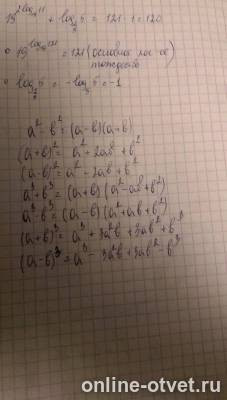 19^{2log_{19}11} + log_{1/5}5 = 121 - 1 = 120
19^{log_{19}121} = 121 (основное лог-ое
тождество)
log_{1/5}5 = -log_5 5 = -1
a² - b² = (a-b)(a+b)
(a+b)² = a² + 2ab + b²
(a-b)² = a² - 2ab + b²
a³ + b³ = (a+b)(a² - ab + b²)
a³ - b³ = (a-b)(a² + ab + b²)
(a+b)³ = a³ + 3a²b + 3ab² + b³
(a-b)³ = a³ - 3a²b + 3ab² - b³
online-otvet.ru